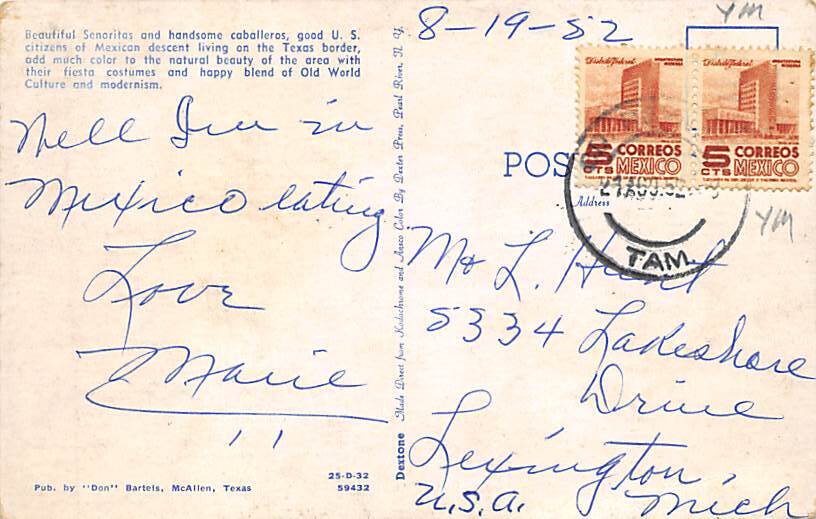 Beautiful Senoritas and handsome caballeros, good U. S.
citizens of Mexican descent living on the Texas border,
add much color to the natural beauty of the area with
their fiesta costumes and happy blend of Old World
Culture and modernism.
Well I'm in
Mexico eating
Love
Marie
25-D-32
59432
Pub. by "Don" Bartels, McAllen, Texas
Dextone Made Direct from Kodachrome and Ansco Color By Dexter Press, Pearl River, N. Y.
8-19-52
YM
Distrito Federal ARQUITECTURA MODERNA
5 CTS CORREOS MEXICO
Distrito Federal ARQUITECTURA MODERNA
5 CTS CORREOS MEXICO
POS
Address
TAM.
YM
Mr L. Hunt
5334 Lakeshore
Drive
Lexington,
Mich
U.S.A.